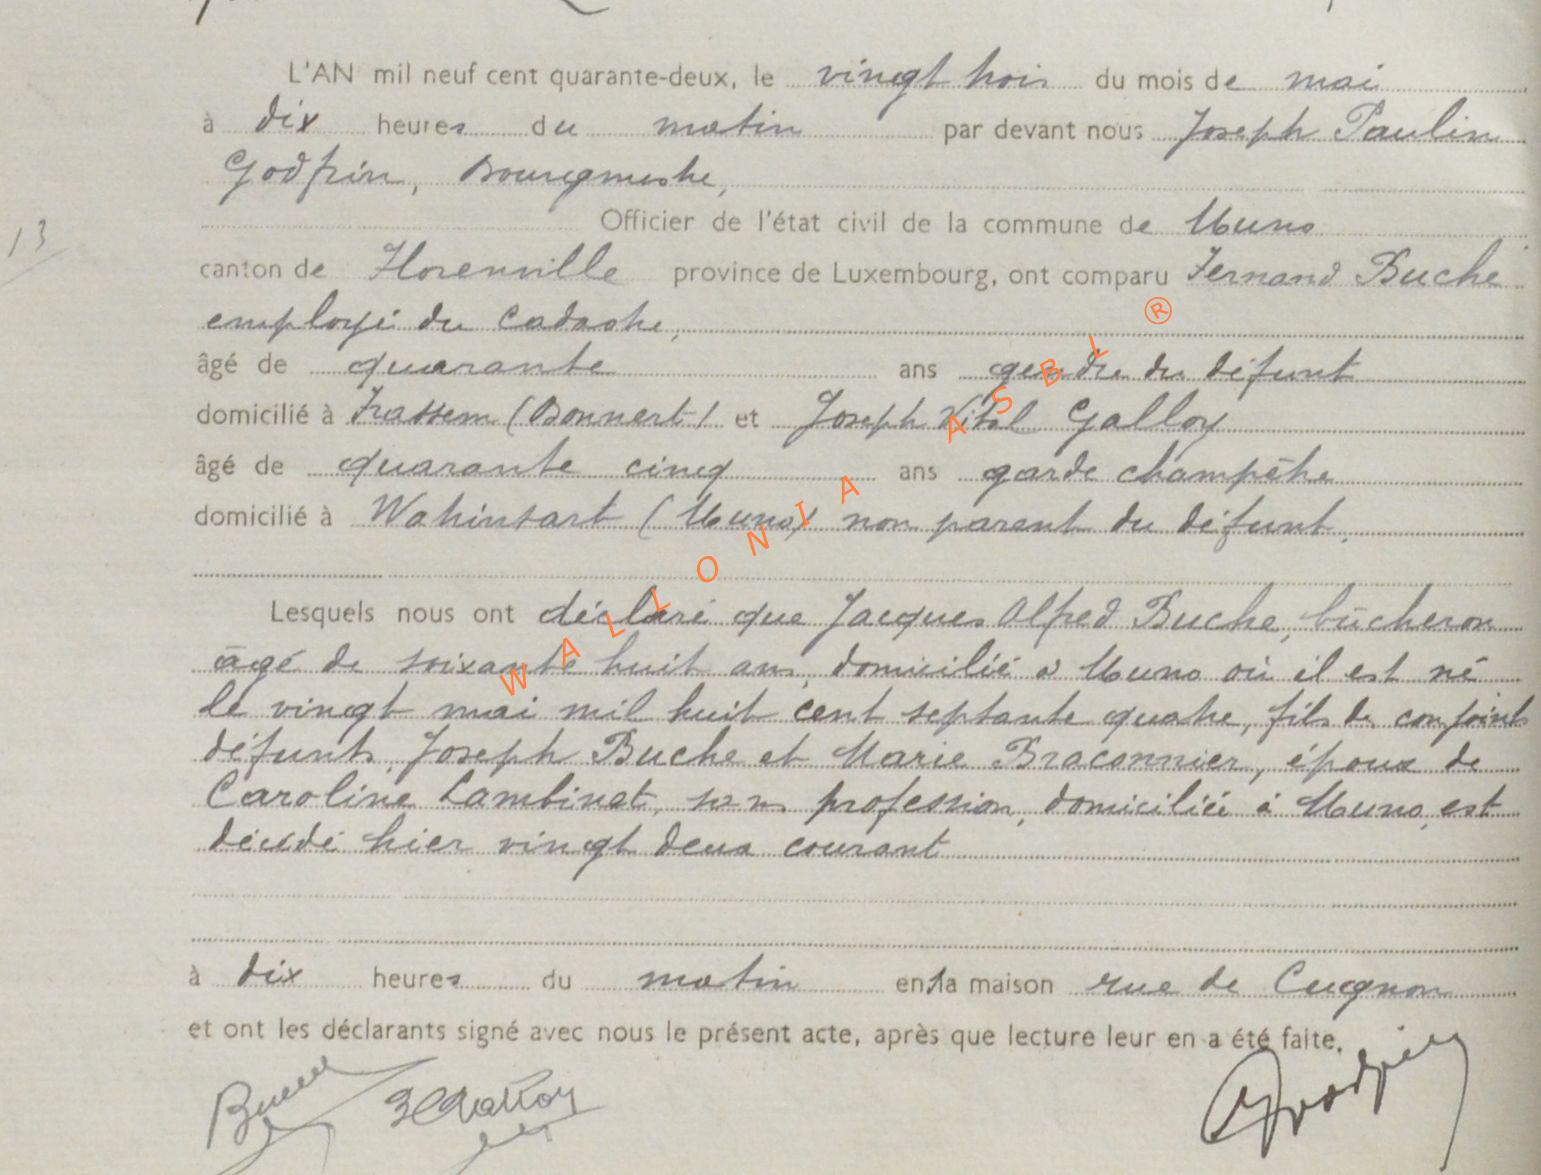 L'AN mil neuf cent quarante-deux, le vingt trois du mois de mai
à dix heures du matin par devant nous Joseph Paulin
Godfrin, Bourgmestre,
Officier de l'état civil de la commune de Muno
13
canton de Florenville province de Luxembourg, ont comparu Fernand Buche
employé du Cadastre,
âgé de quarante ans gendre du défunt
domicilié à Frassem (Bonnert) et Joseph Vital Galloy
âgé de quarante cinq ans garde champêtre
domicilié à Watrinsart (Muno) non parent du défunt,
Lesquels nous ont déclaré que Jacques Alfred Buche, bûcheron
âgé de soixante huit ans, domicilié à Muno où il est né
le vingt mai mil huit cent septante quatre, fils de conjoints
défunts Joseph Buche et Marie Braconnier, époux de
Caroline Lambinet, sans profession, domiciliée à Muno, est
décédé hier vingt deux courant
à dix heures du matin en la maison rue de Cugnon
et ont les déclarants signé avec nous le présent acte, après que lecture leur en a été faite.
WALLONIA ASBL ®